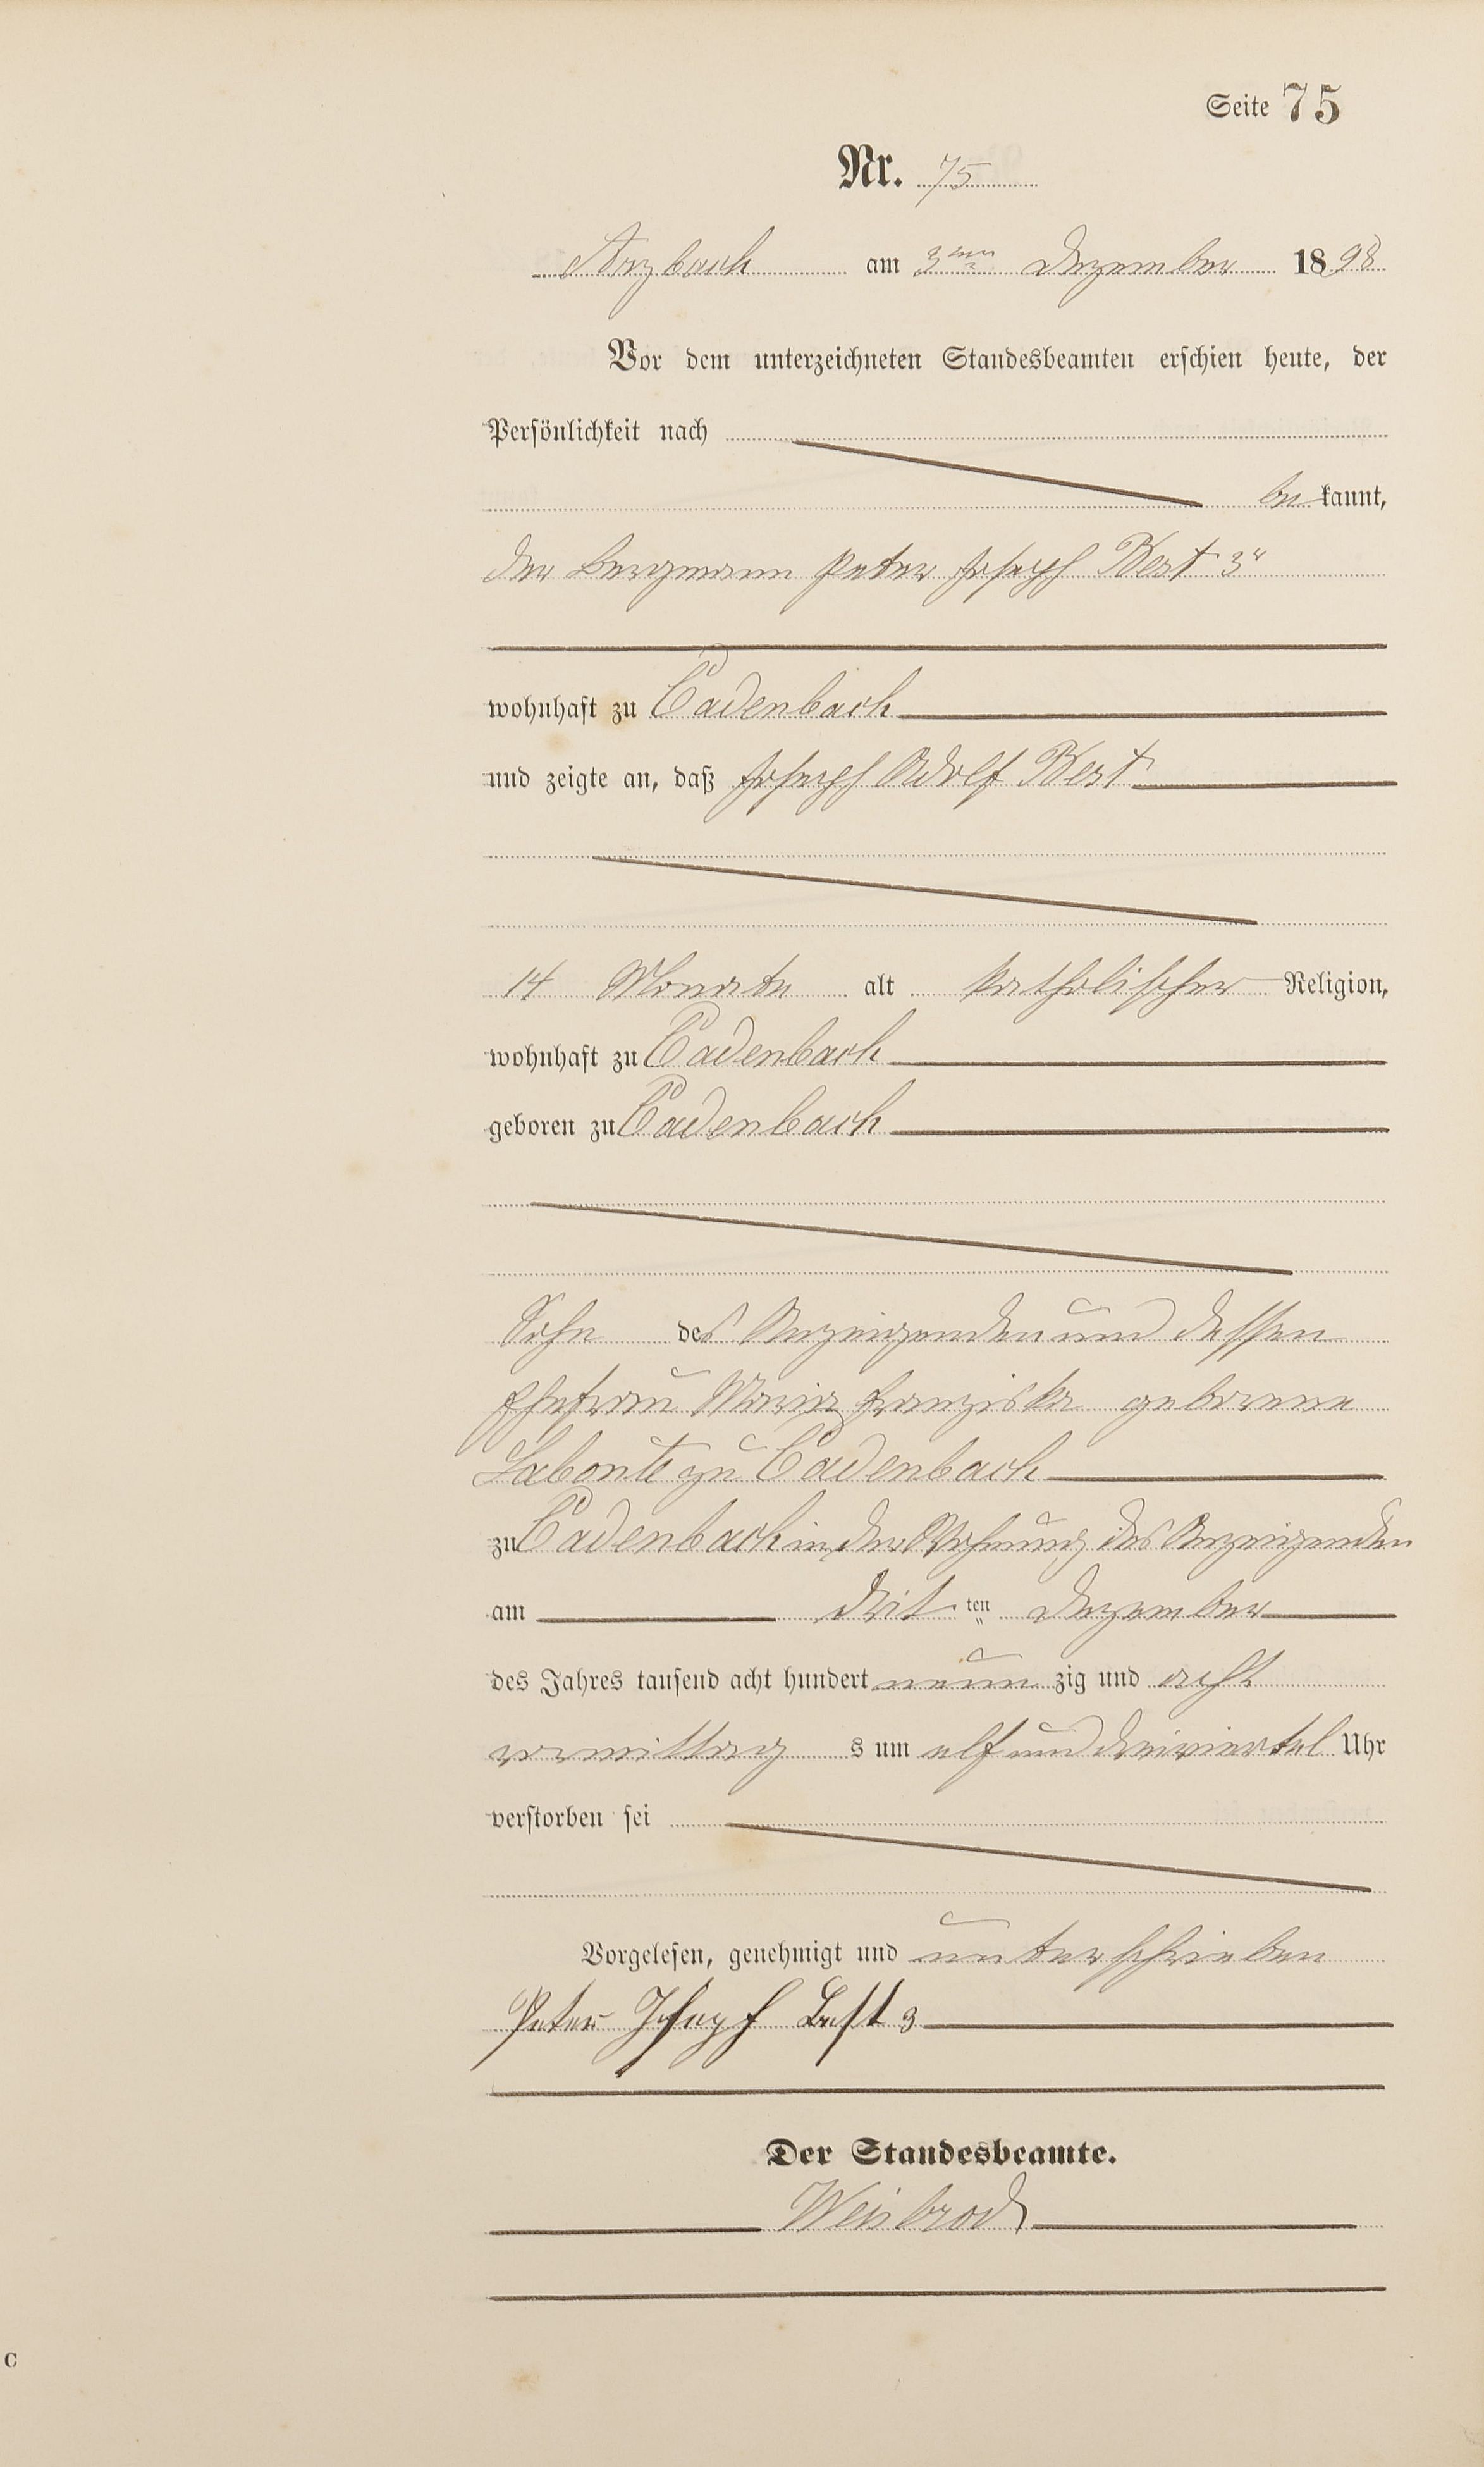 Seite 75
Nr. 75
Arzbach am 3ten Dezember 1898
Vor dem unterzeichneten Standesbeamten erschien heute, der
Persönlichkeit nach
be kannt,
der Bergmann Peter Joseph Best 3r
wohnhaft zu Cadenbach
und zeigte an, daß Joseph Adolf Best
14 Monate alt katholischer Religion,
wohnhaft zu Cadenbach
geboren zu Cadenbach
Sohn des Anzeigenden und dessen
Ehefrau Maria Franziska geborene
Labonte zu Cadenbach
zu Cadenbach in der Wohnung des Anzeigenden
am drit ten Dezember
des Jahres tausend acht hundert neun zig und acht
vormittag s um elf und dreiviertel Uhr
verstorben sei
Vorgelesen, genehmigt und unterschrieben
Peter Joseph Best 3
Der Standesbeamte.
Weisbrod
C